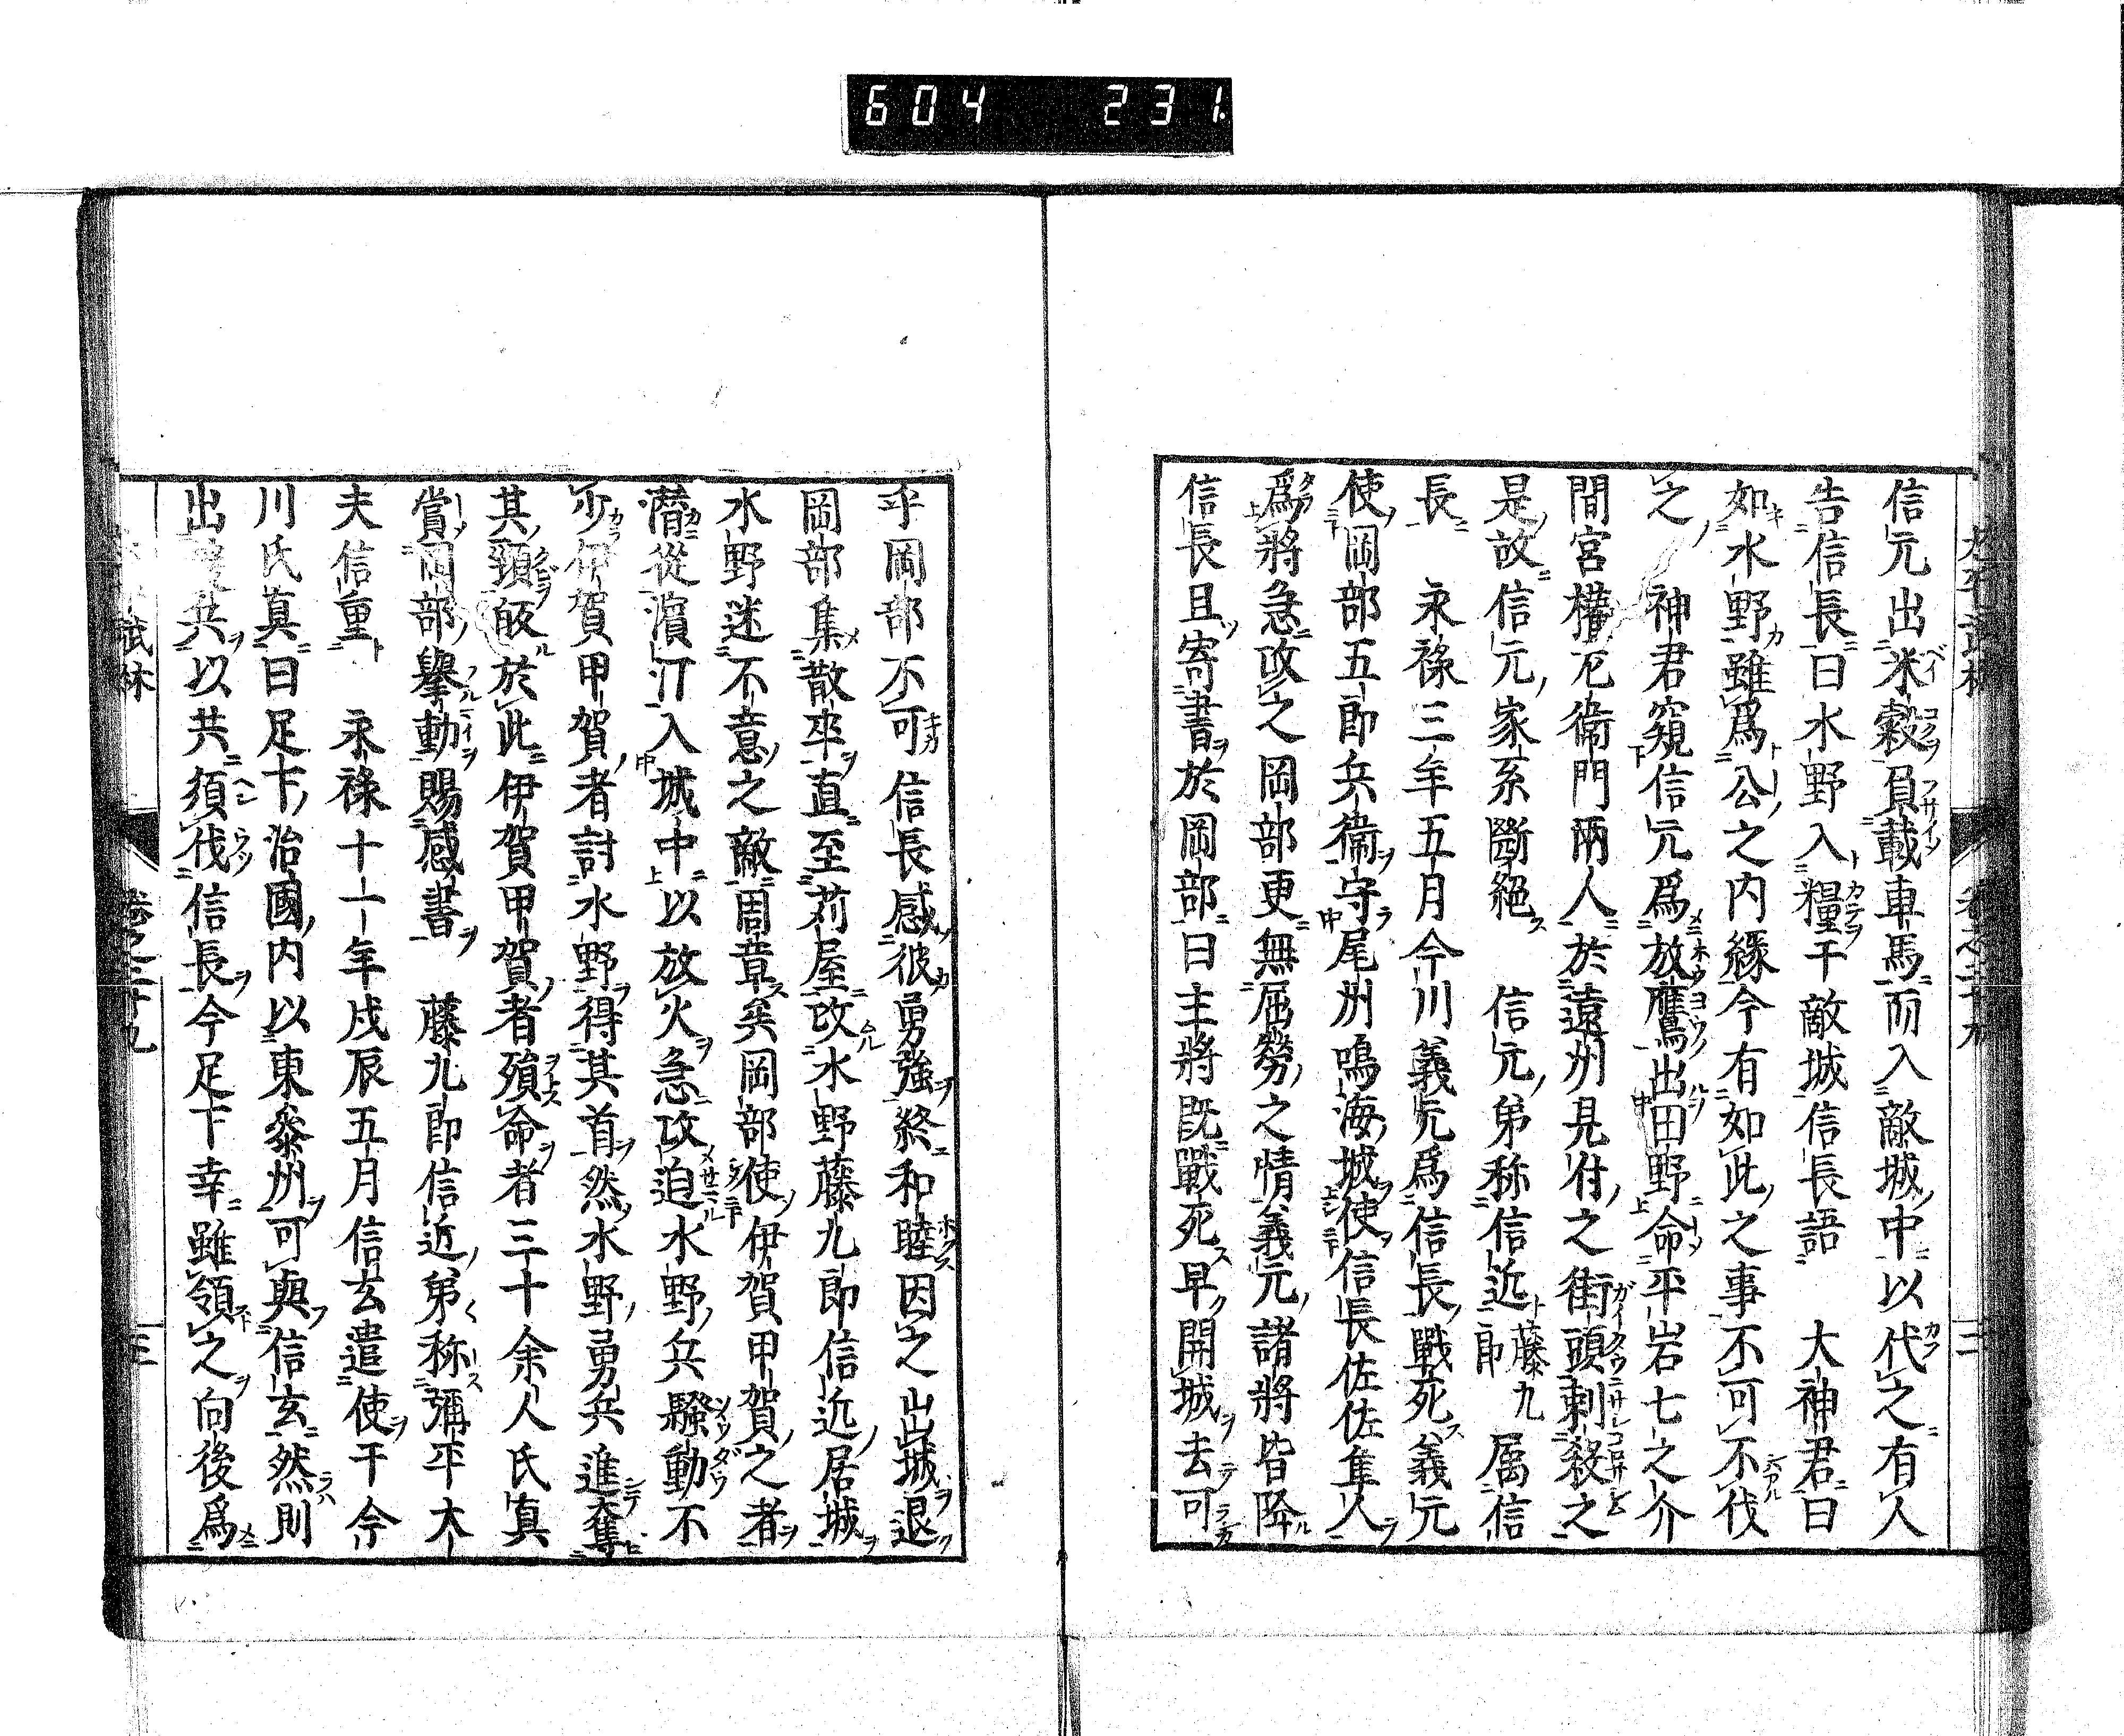 604 231
信元出米穀負載車馬而入敵城中以代之有人
告信長曰水野入糧于敵城信長語 大神君曰
如水野雖爲公之内縁今有如此之事不可不伐
之 神君窺信元爲放鷹出田野命平岩七之介
間宮權右衞門兩人於遠州見付之街頭刺殺之
是故信元家系斷絕 信元弟称信近藤九郎属信
長 永禄三年五月今川義元爲信長戰死義元
使岡部五郎兵衞守尾州鳴海城使信長佐佐隼人
爲將急攻之岡部更無屈勞之情義元諸將皆降
信長且寄書於岡部曰主將既戰死早開城去可
乎岡部不可信長感彼勇強終和睦因之出城退
岡部集散卒直至苅屋攻水野藤九郎信近居城
水野迷不意之敵周章矣岡部使伊賀甲賀之者
潜從濵汀入城中以放火急攻迫水野兵騒動不
少伊賀甲賀者討水野得其首然水野勇兵進奪
其頸皈於此伊賀甲賀者殞命者三十余人氏真
賞岡部擧動賜感書 藤九郎信近弟称彌平大
夫信重 永禄十一年戊辰五月信玄遣使于今
川氏真曰足下治國内以東叅州可與信玄然則
出兵以共須伐信長今足下幸雖領之向後爲
武林 卷之三十九 三